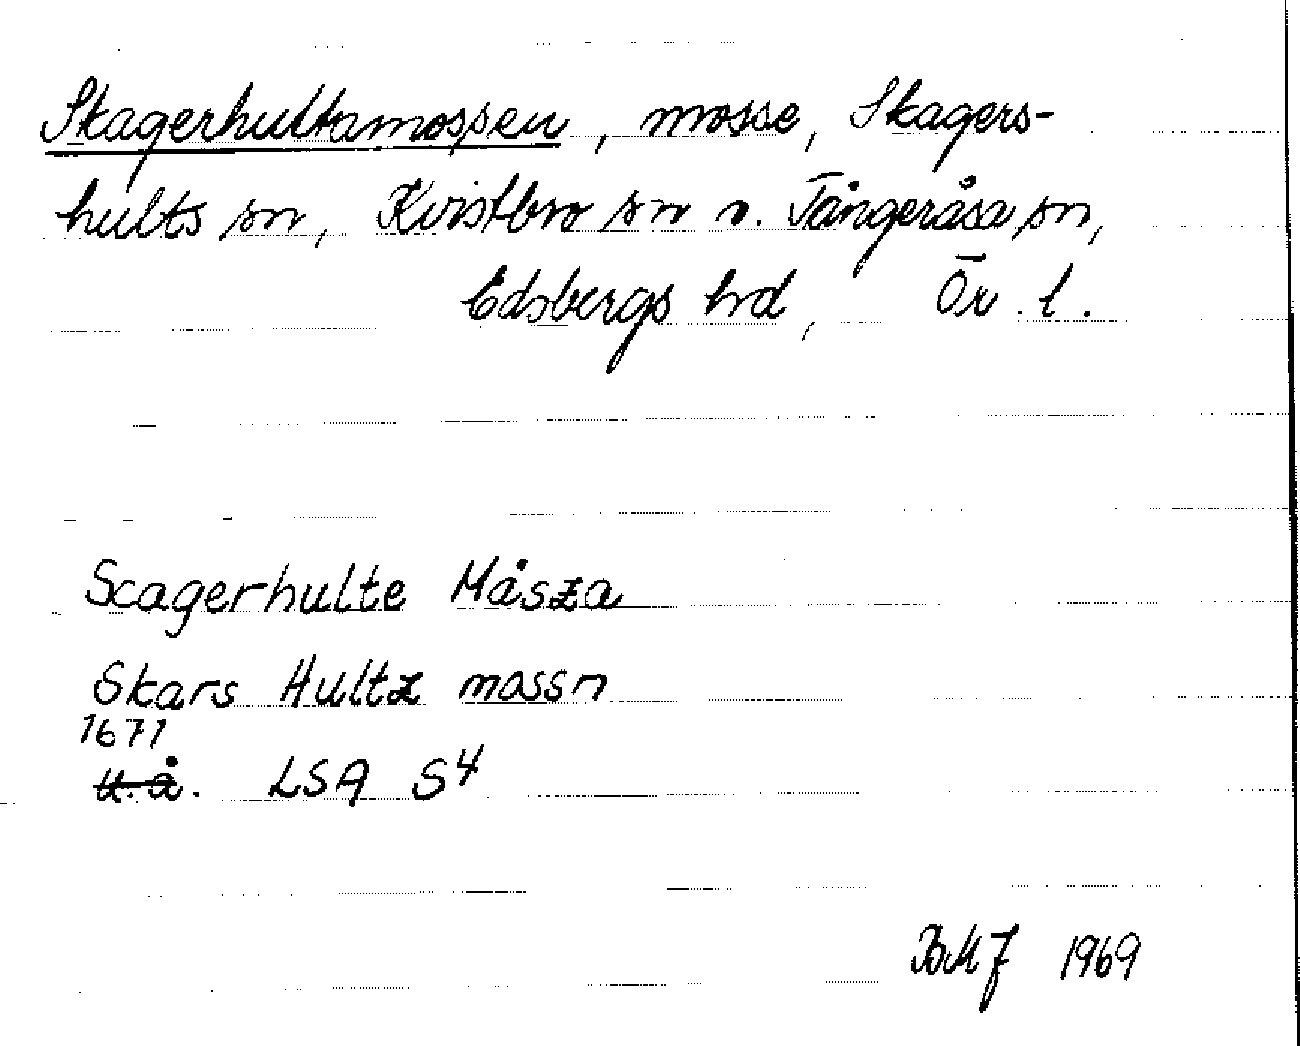 Skagerhultamossen, mosse, Skagers-
hults sn, Kvistbro sn o. Tångeråsa sn,
Edsbergs hd, Ör. l.
Scagerhulte Måsza
Skars Hultz mossn
1671
u.å. LSA S4
BMJ 1969